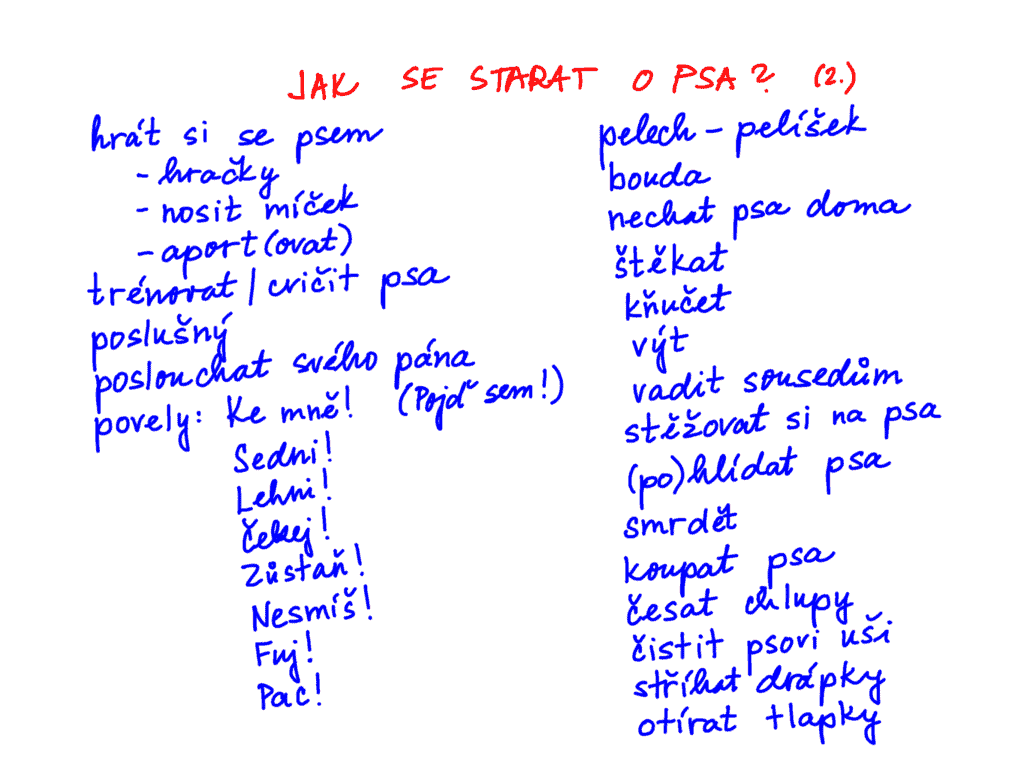 JAK SE STARAT O PSA? (2.)
hrát si se psem
- hračky
- nosit míček
- aport(ovat)
trénovat / cvičit psa
poslušný
poslouchat svého pána
povely: Ke mně! (Pojď sem!)
Sedni!
Lehni!
Čekej!
Zůstaň!
Nesmíš!
Fuj!
Pac!
pelech - pelíšek
bouda
nechat psa doma
štěkat
kňučet
výt
vadit sousedům
stěžovat si na psa
(po)hlídat psa
smrdět
koupat psa
česat chlupy
čistit psovi uši
stříhat drápky
otírat tlapky